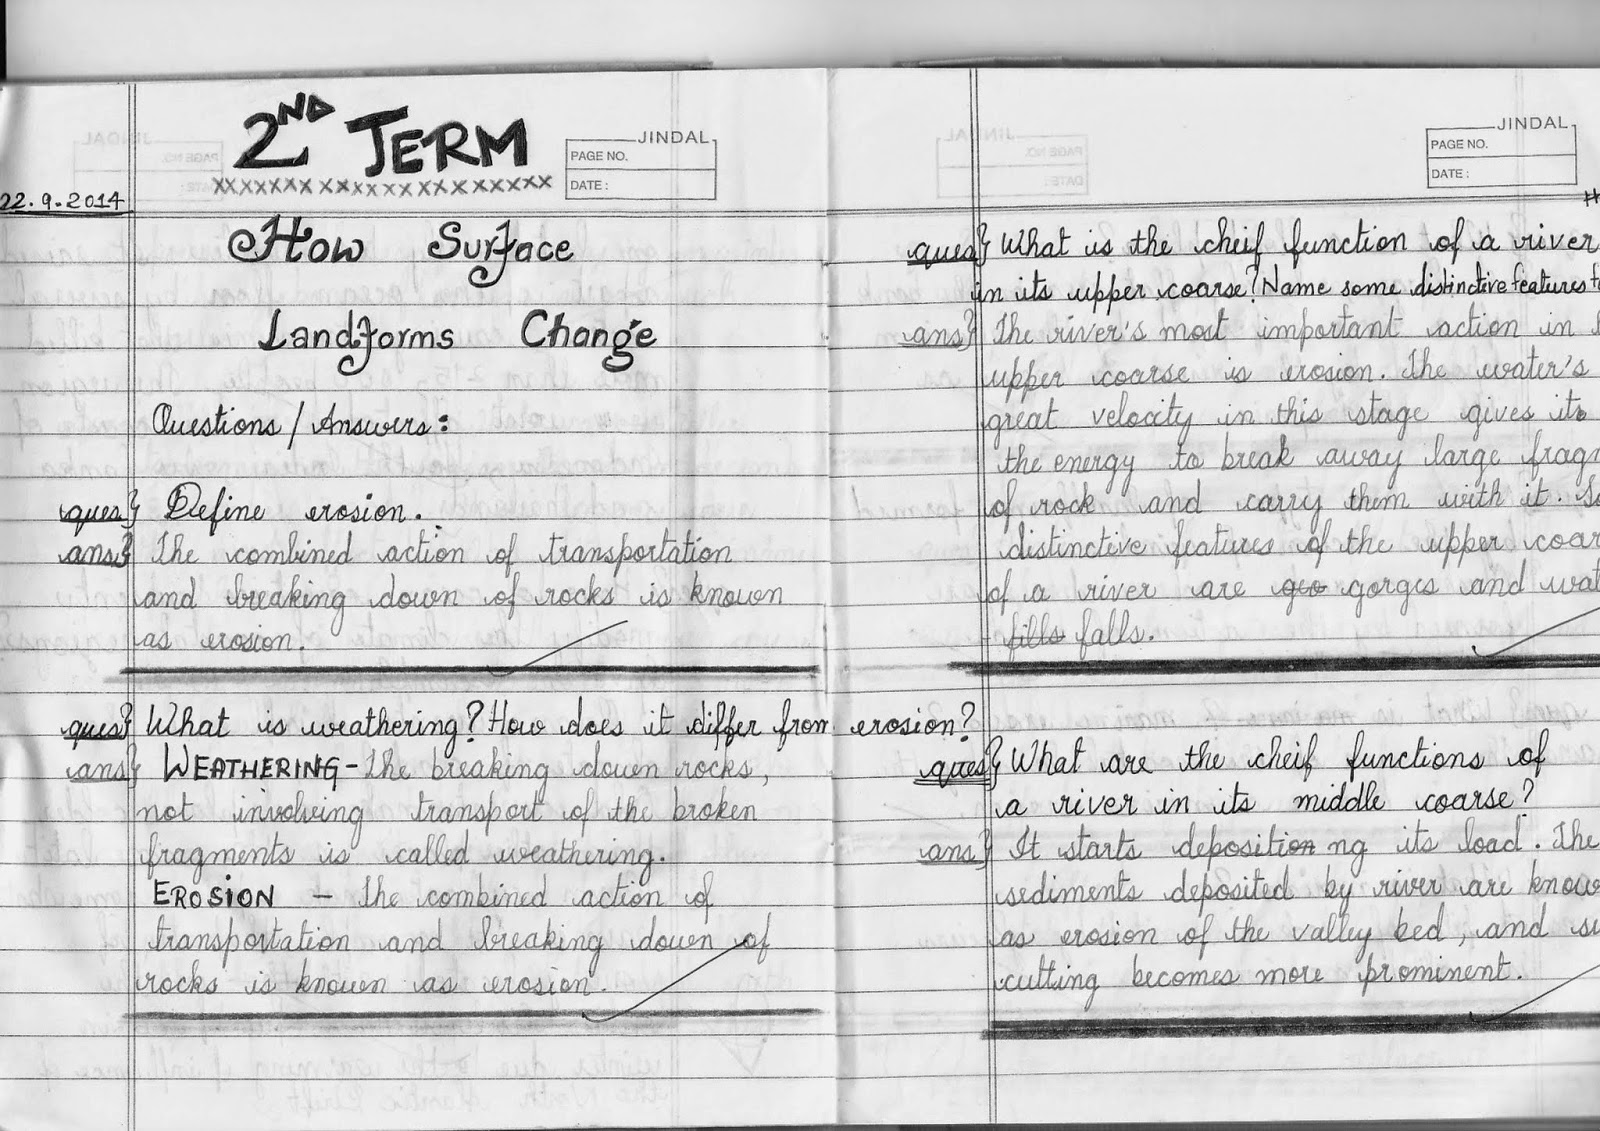 2ND TERM
XXXXXXX XXXXXXXXXXXXXXXX
JINDAL
PAGE NO.
DATE :
22.9.2014
How Surface
Landforms Change
Questions / Answers :
ques} Define erosion.
ans} The combined action of transportation
and breaking down of rocks is known
as erosion.
ques} What is weathering? How does it differ from erosion?
ans} WEATHERING - The breaking down rocks,
not involving transport of the broken
fragments is called weathering.
EROSION - The combined action of
transportation and breaking down of
rocks is known as erosion.
JINDAL
PAGE NO.
DATE :
ques} What is the cheif function of a river
in its upper coarse? Name some distinctive features
ans} The river's most important action in
upper coarse is erosion. The water's
great velocity in this stage gives it
the energy to break away large fragm
of rock and carry them with it. So
distinctive features of the upper coar
of a river are geo gorges and wat
fills falls.
ques} What are the cheif functions of
a river in its middle coarse?
ans} It starts deposition ng its load. The
sediments deposited by river are know
as erosion of the valley bed, and si
cutting becomes more prominent.